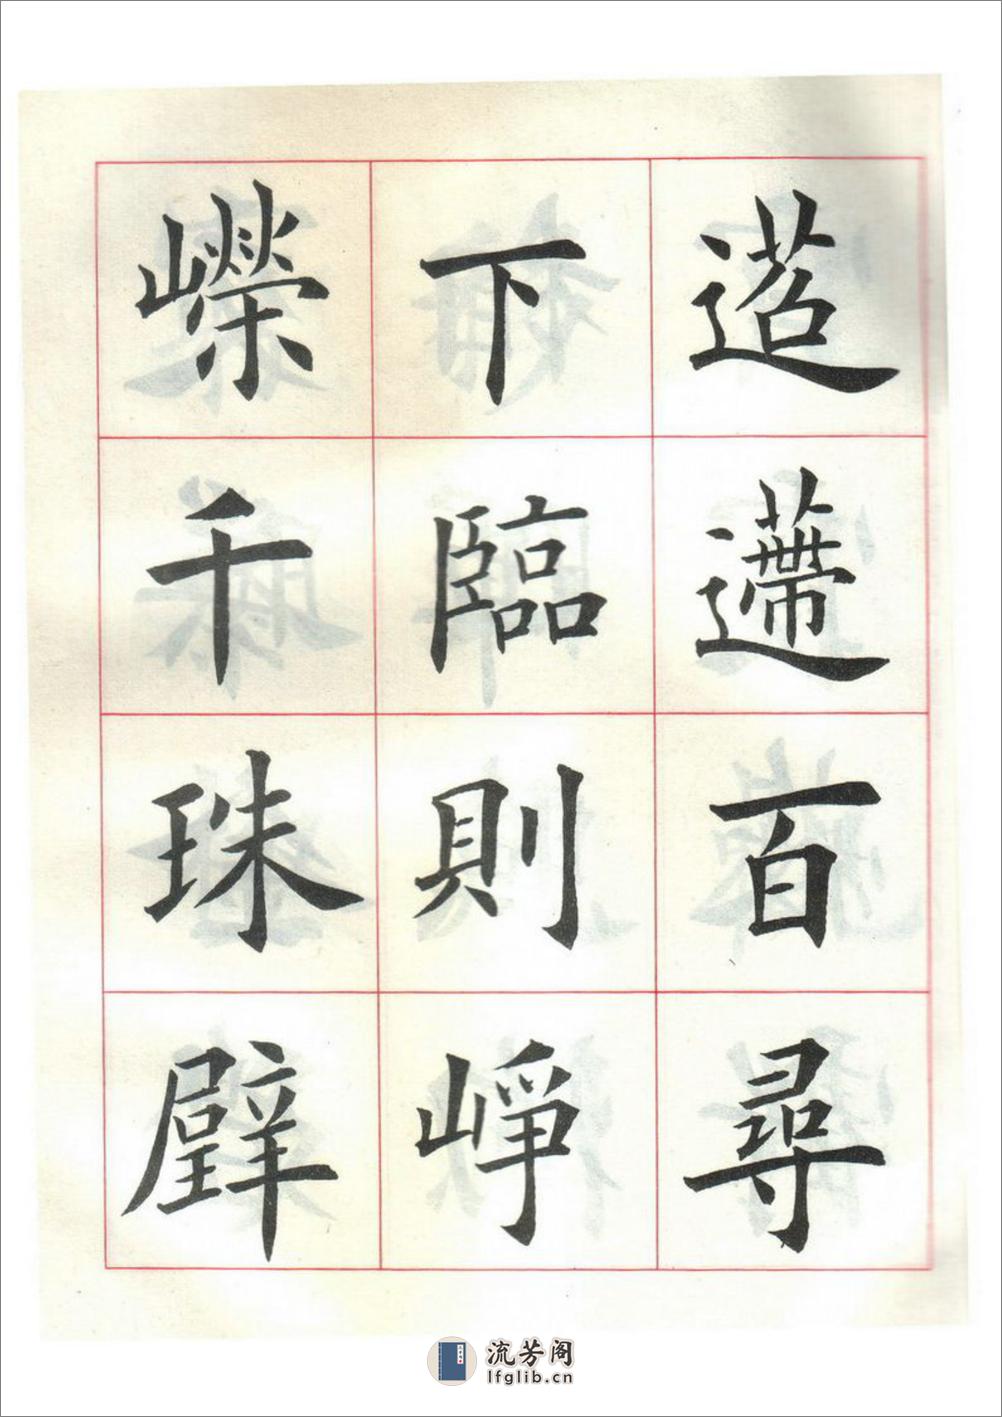 迢遰百尋
下臨則崢
嶸千珠璧
流芳阁
lfglib.cn